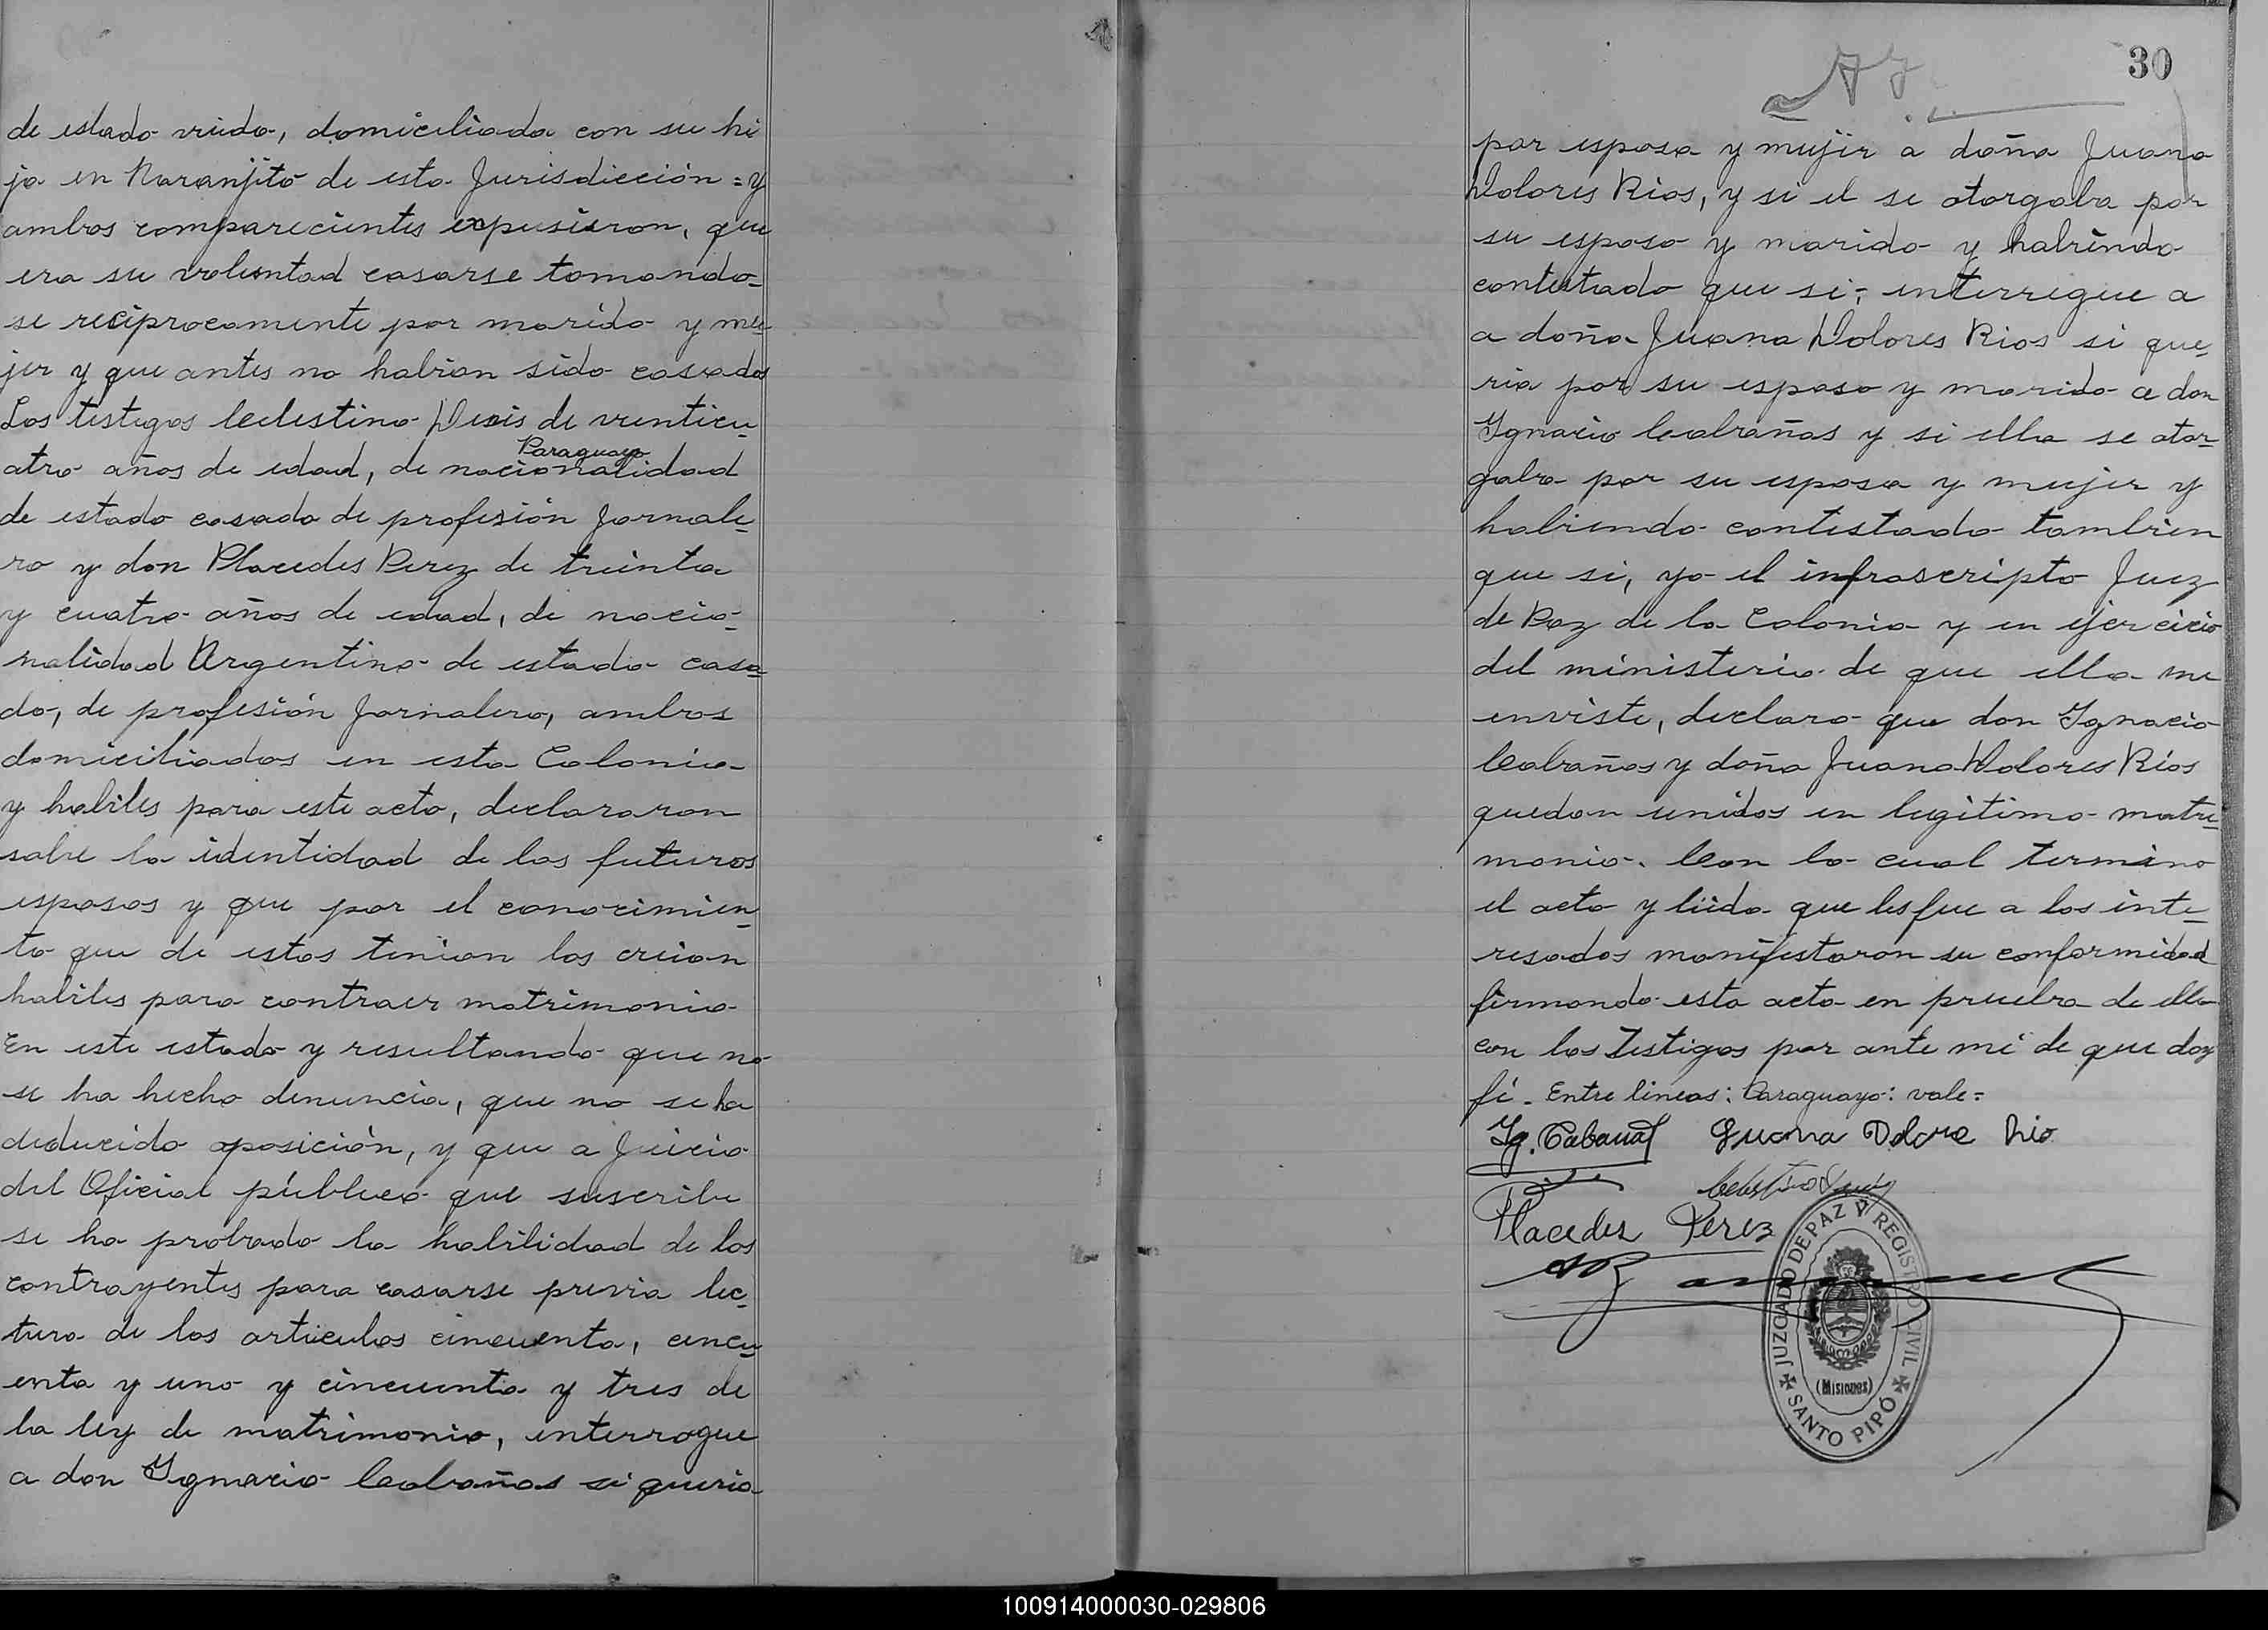 de estado viudo, domiciliada con su hi
ja en Naranjito de esta Jurisdicción = y
ambos comparecientes expusieron, que
era su voluntad casarse tomando=
se reciprocamente por marido y mu-
jer y que antes no habian sido casados
Los testigos Celestino de venticu-
Paraguayo
atro años de edad, de nacionalidad
de estado casado de profesión Jornale-
ro y don Placedes Perez de treinta
y cuatro años de edad, de nacio-
nalidad Argentino de estado casa-
do, de profesión Jornalero, ambos
domiciliados en esta Colonia
y habiles para este acto, declararon
sobre la identidad de los futuros
esposos y que por el conocimien-
to que de estos tenian los creian
habiles para contraer matrimonio
En este estado y resultando que no
se ha hecho denuncia, que no se ha
deducido oposición, y que a Juicio
del Oficial público que suscribe
se ha probado la habilidad de los
contrayentes para casarse previa lec-
tura de los articulos cincuenta, cincu-
enta y uno y cincuenta y tres de
la ley de matrimonio, interrogue
a don Ygnacio Cabañas si queria
30
por esposa y mujer a doña Juana
Dolores Rios, y si el se otorgaba por
su esposo y marido y habiendo
contestado que si; interrogue a
a doña Juana Dolores Rios si que-
ria por su esposo y marido a don
Ygnacio Cabañas y si ella se otor-
gaba por su esposa y mujer y
habiendo contestado tambien
que si, yo el infrascripto Juez
de Paz de la Colonia y en ejercicio
del ministerio de que ella me
enviste, declaro que don Ygnacio
Cabañas y doña Juana Dolores Rios
quedan unidos en legitimo matri-
monio. Con lo cual termino
el acto y leido que les fue a los inte-
resados manifestaron su conformidad
firmando esta acta en prueba de ello
con los Testigos por ante mi de que doy
fé. Entre lineas: Paraguayo: vale=
Yg. Cabañas Juana Dolore Rio
Placedes Perez
JUZGADO DE PAZ Y REGISTRO CIVIL
(MISIONES)
SANTO PIPÓ
100914000030-029806